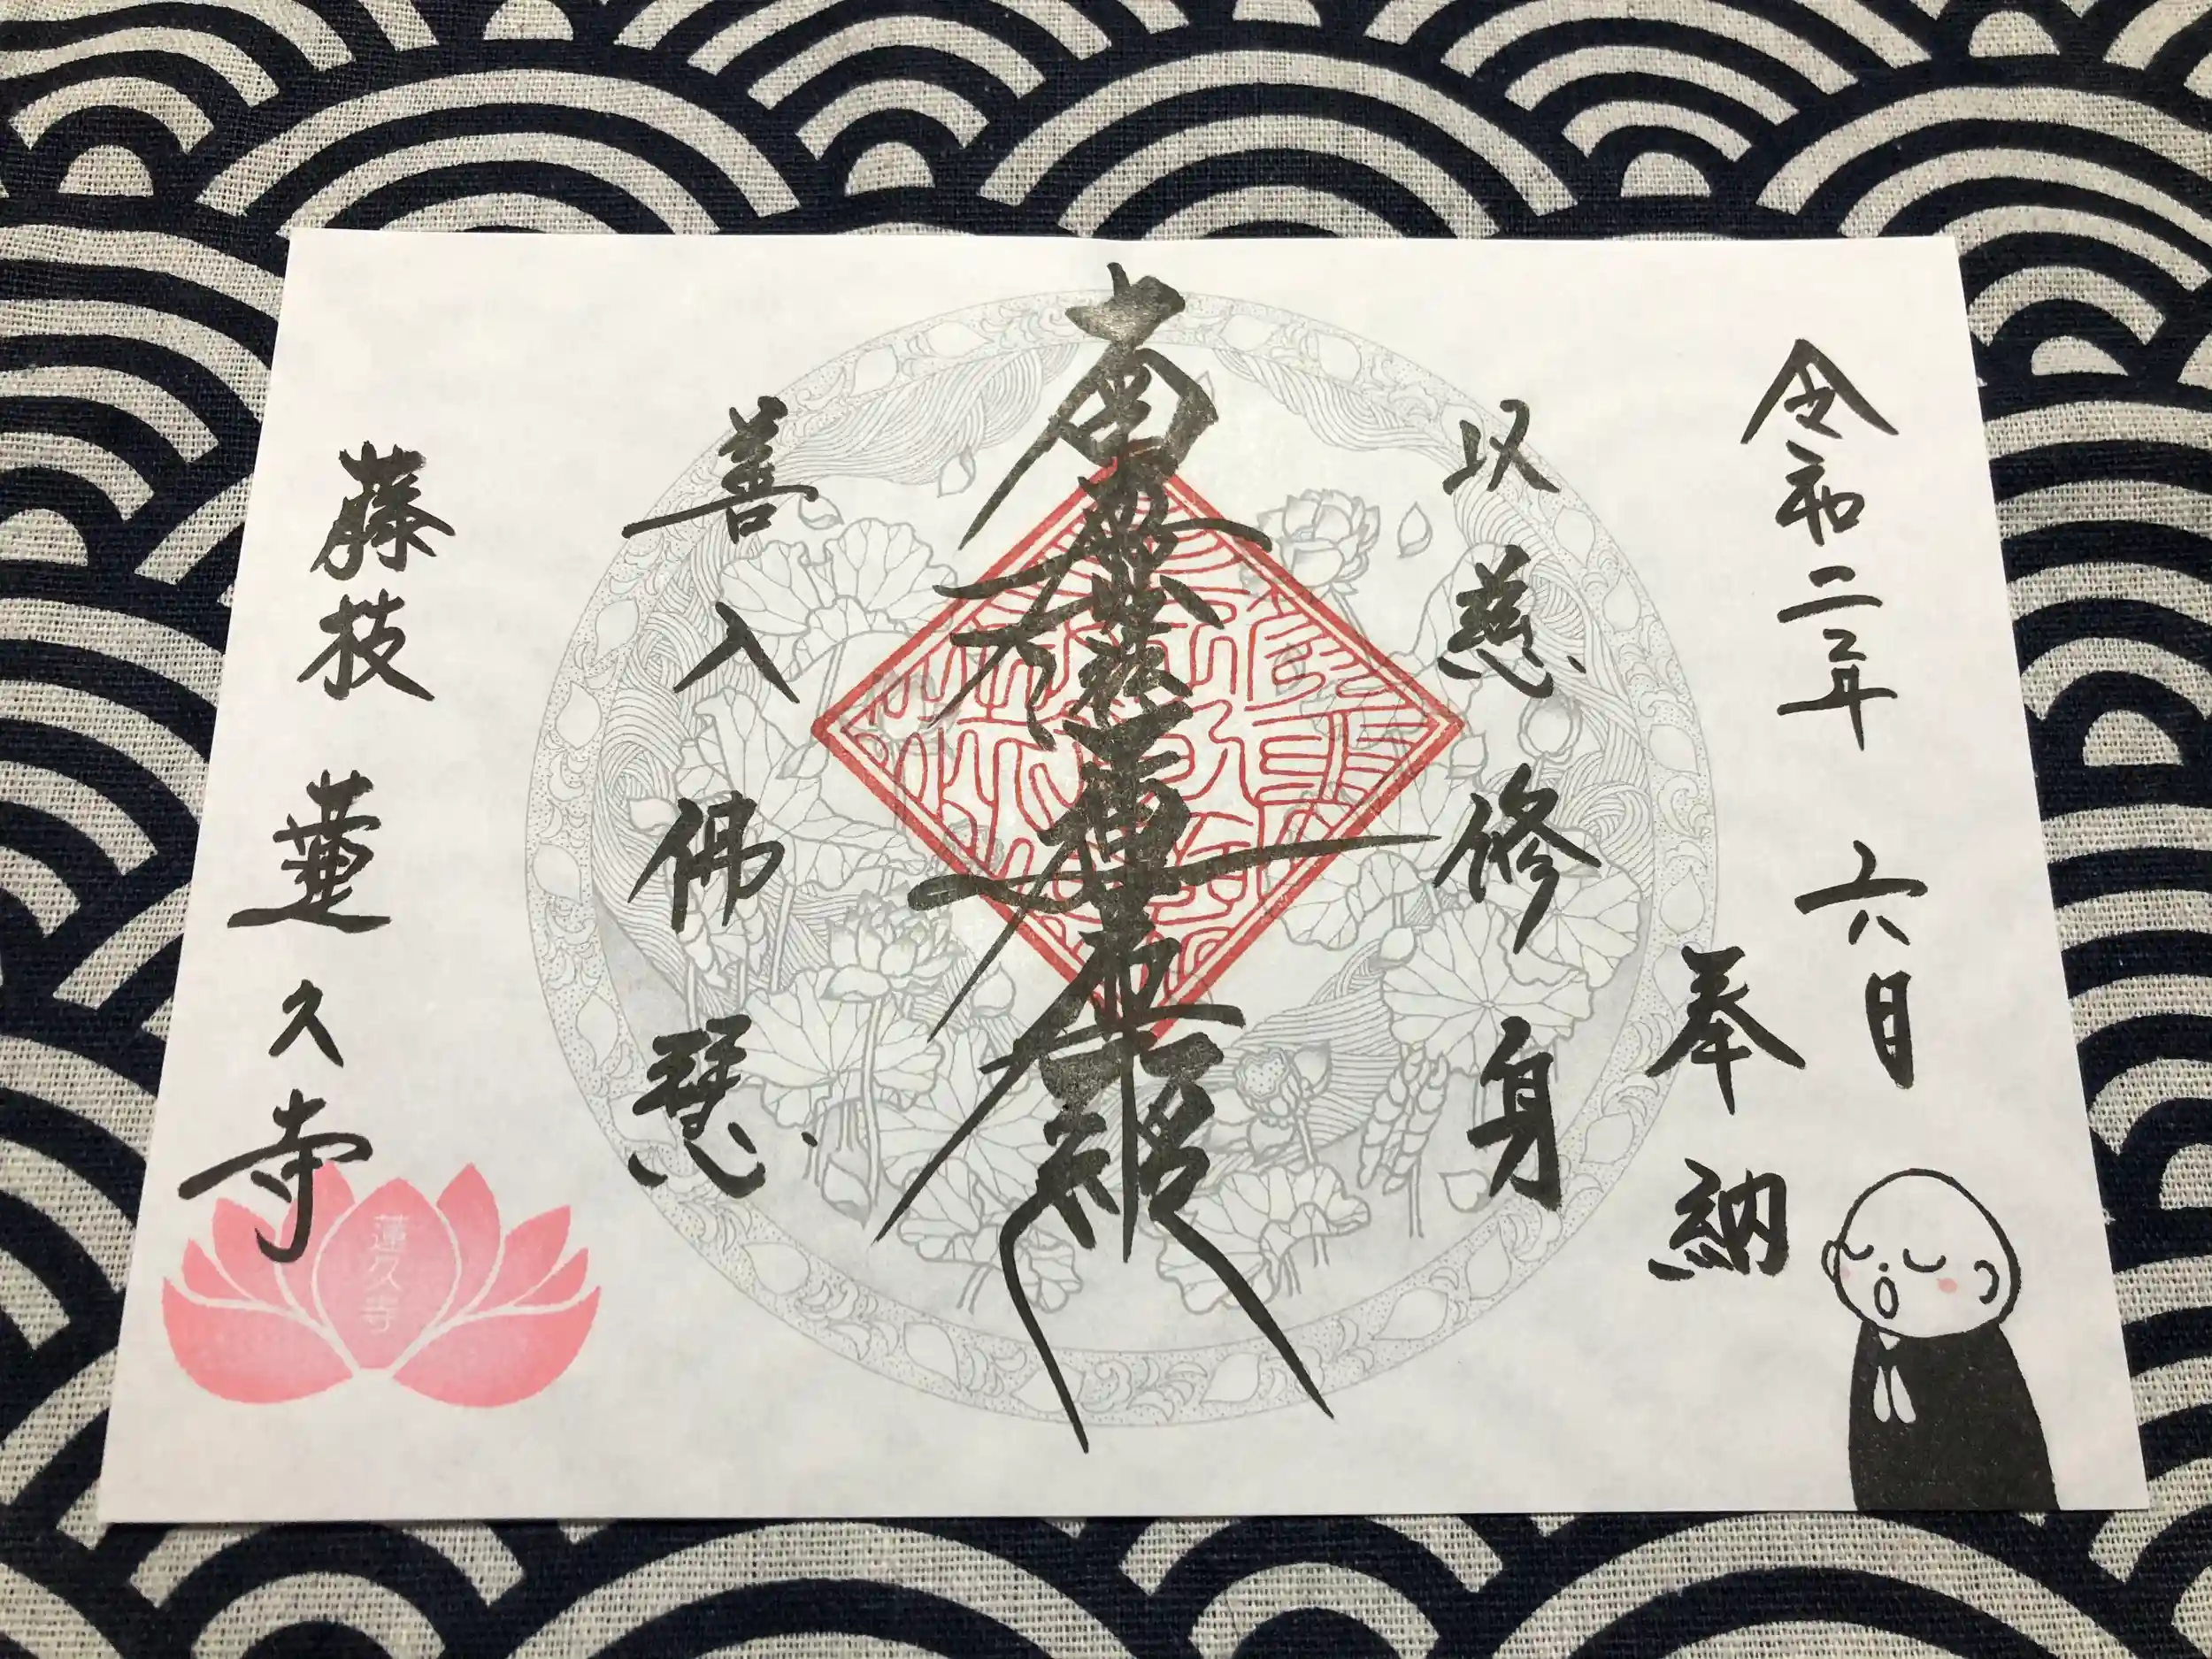 令和二年 六日
奉納
以慈修身
南無妙法蓮華経
善入佛慧
藤枝 蓮久寺
蓮久寺